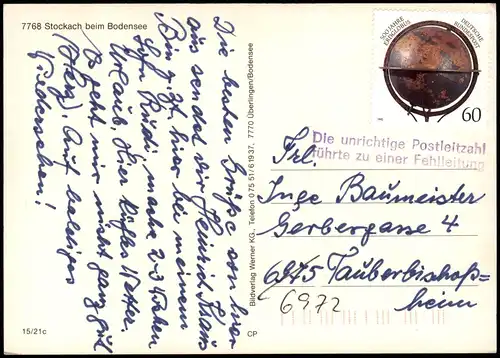 7768 Stockach beim Bodensee
Die besten Grüße von hier
aus sendet dir Heinrich
Bin z. Zt. hier bei meinem
Rudi, mache 2-3 Wochen
Urlaub. Hier kühles Wetter.
Es geht mir nicht ganz gut
(Herz). Auf baldiges
Wiedersehen!
15/21c
CP
Bildverlag Werner KG., Telefon 0 75 51/6 19 37, 7770 Überlingen/Bodensee
500 JAHRE
ERDGLOBUS
DEUTSCHE
BUNDESPOST
60
Die unrichtige Postleitzahl
führte zu einer Fehlleitung
Frl.
Inge Baumeister
Gerbergasse 4
6975 Tauberbischofs-
heim
6972